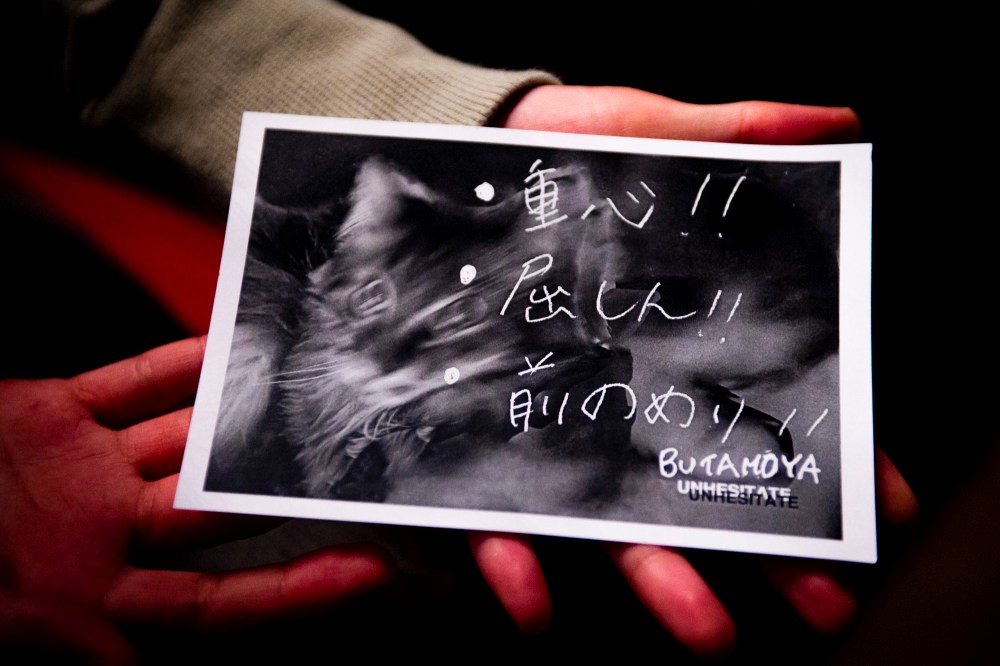 ・重心!!
・屈しん!!
・前のめり!!
BUTAMOYA
UNHESITATE
UNHESITATE